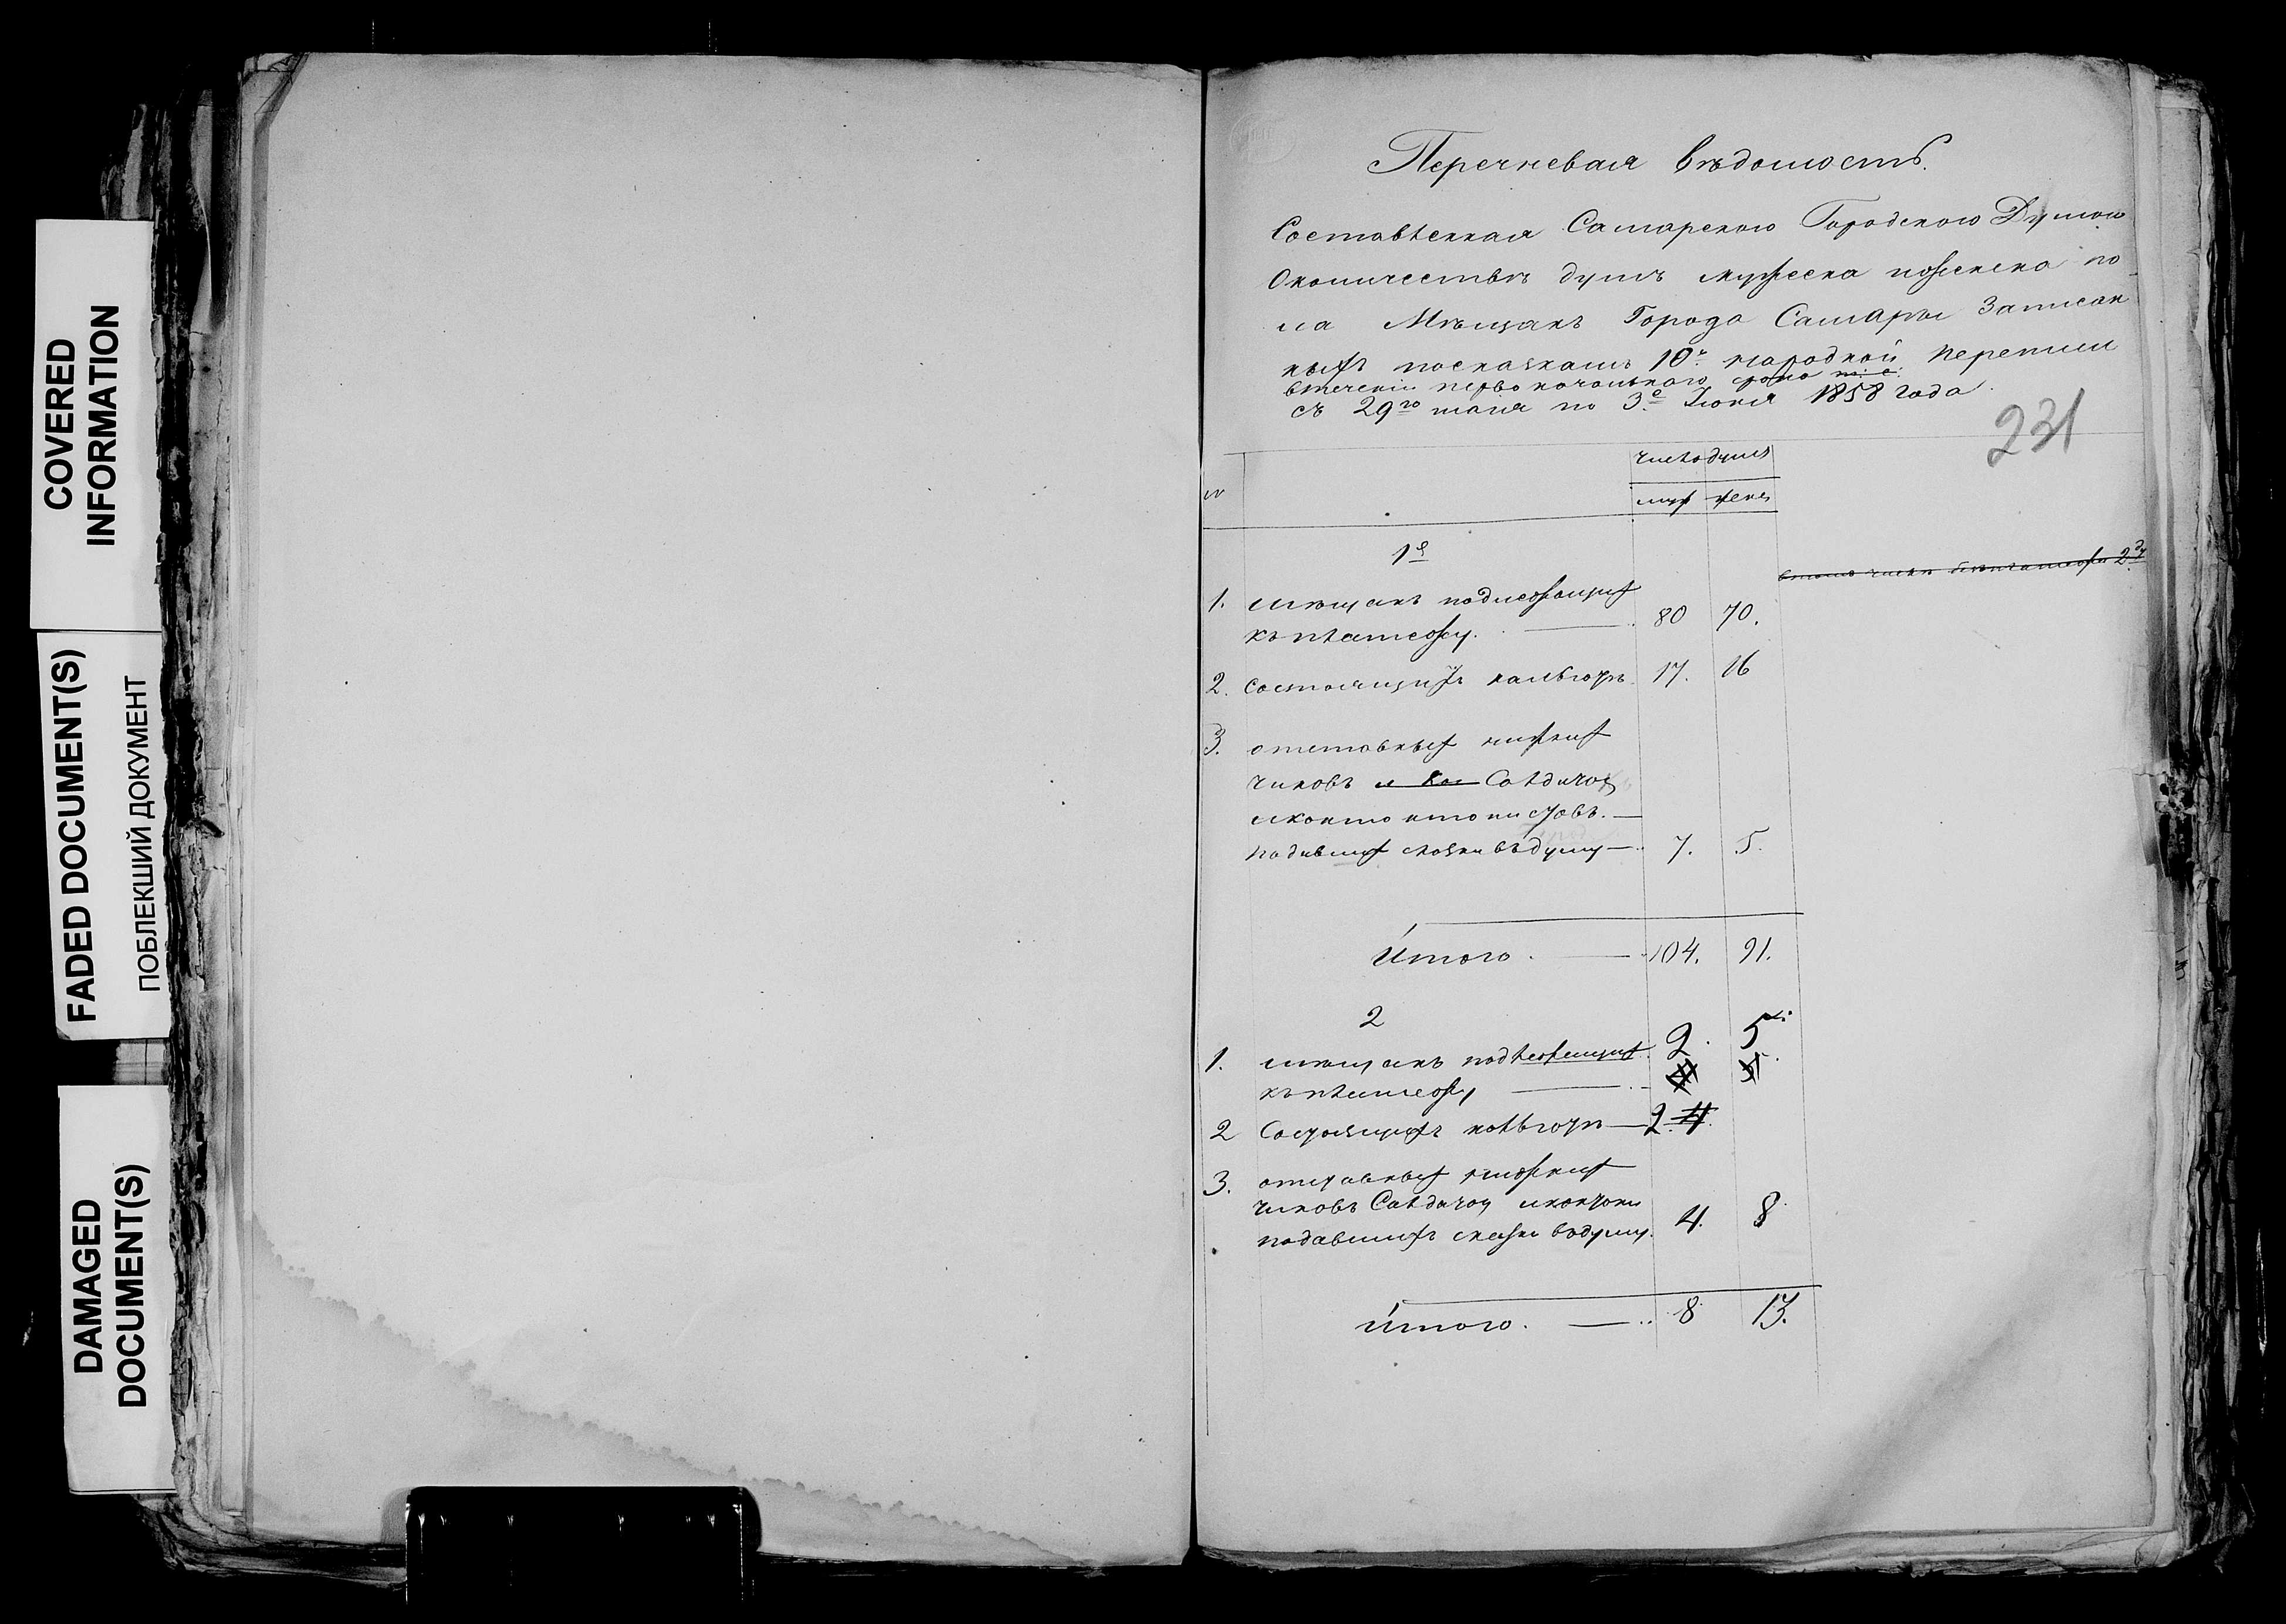 COVERED
INFORMATION
FADED DOCUMENT(S)
ПОБЛЕКШИЙ ДОКУМЕНТ
DAMAGED
DOCUMENT(S)
Перечневая вѣдомость.
Составленная Самарскою Городскою Думою
Околичествѣ душъ мужеска иженска по-
ла Мѣщанъ Города Самары Записан
ныхъ посказкамъ 10й народной переписи
втеченіи первоначальнаго срока т: е:
съ 29го маія по 3е Июня 1858 года
231
число душъ
№ муж женс
1е
втомъ числѣ 2
1. мѣщанъ подлежащих
къ платежу. 80 70.
2. состоящихъ 17. 16
3. отставных нижних
чиновъ и Кан Солдаток
икантонистовъ.
подавших сказки въ думу 7. 5.
Итого. 104. 91.
2
1. мѣщанъ подлежащих 2. 5
къ платежу
2 Состоящихъ 2. 4.
3. отставных нижних
чиновъ Солдаток икантони
подавшихъ сказки вдуму. 4. 8
Итого. 8 13.